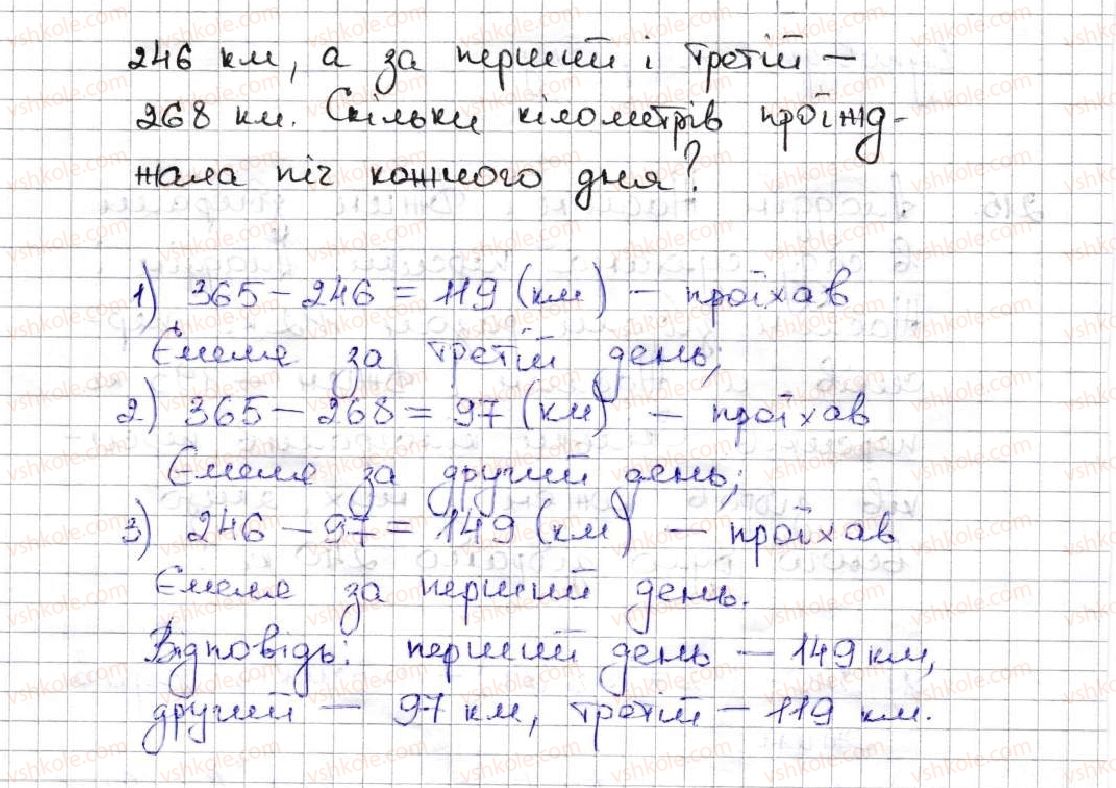 246 км, а за перший і третій –
268 км. Скільки кілометрів проїжд-
жала піч кожного дня?
1) 365 – 246 = 119 (км) – проїхав
Ємеля за третій день;
2) 365 – 268 = 97 (км) – проїхав
Ємеля за другий день;
3) 246 – 97 = 149 (км) – проїхав
Ємеля за перший день.
Відповідь: перший день – 149 км,
другий – 97 км, третій – 119 км.